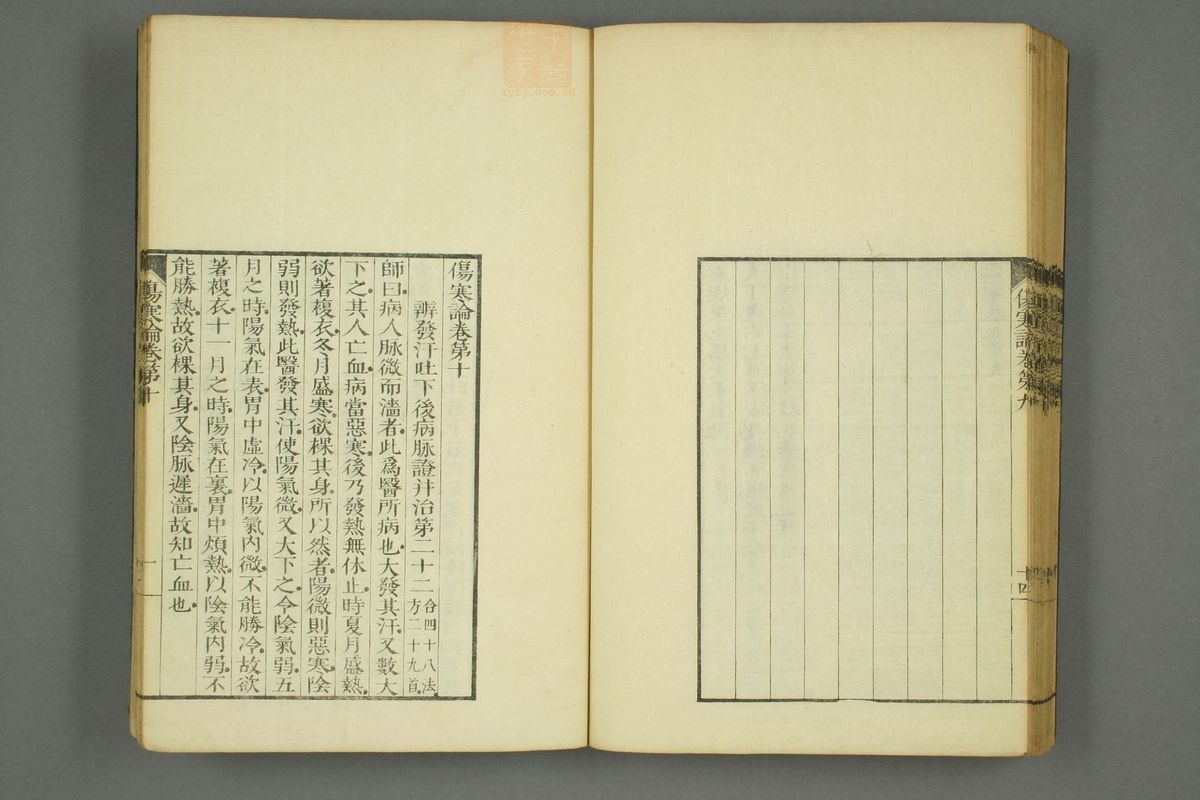 中醫世家
zysj.com.cn
傷寒論卷第九
十四
傷寒論卷第十
辨發汗吐下後病脉證并治第二十二 合四十八法 方二十九首
師曰病人脉微而濇者此爲醫所病也大發其汗又數大
下之其人亡血病當惡寒後乃發熱無休止時夏月盛熱
欲著複衣冬月盛寒欲裸其身所以然者陽微則惡寒陰
弱則發熱此醫發其汗使陽氣微又大下之令陰氣弱五
月之時陽氣在表胃中虛冷以陽氣內微不能勝冷故欲
著複衣十一月之時陽氣在裏胃中煩熱以陰氣內弱不
能勝熱故欲裸其身又陰脉遲濇故知亡血也
傷寒論卷第十
一